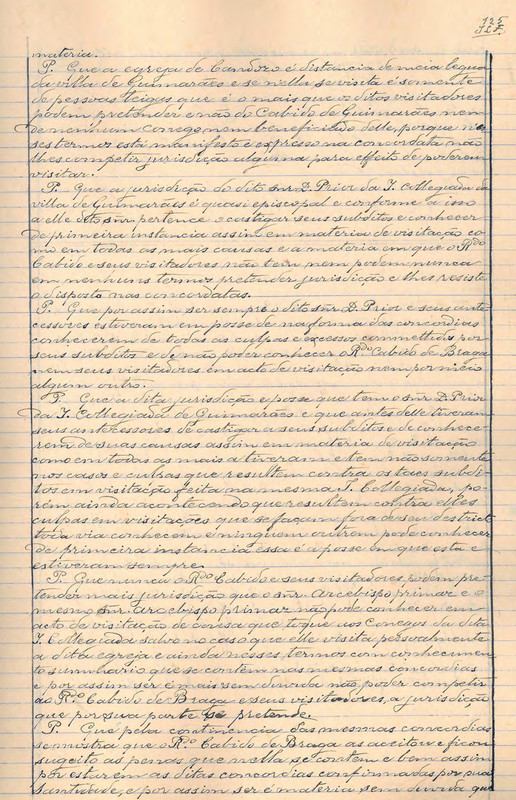 125
materia.
P. Que a egreja de Candozo é distancia de meia legua
da villa de Guimarães e se n'ella se visita é somente
de pessoas leigas que é o mais que os ditos visitadores
podem pretender e não do Cabido de Guimarães nem
de nenhum conego nem beneficiado delle, porque n'es
ses termos está manifesto e expreso na concordata não
lhes competir jurisdicção alguma para effeito de poderem
visitar.
P. Que a jurisdicção do dito snr. D. Prior da I. Collegiada da
villa de Guimarães é quasi episcopal e conforme a isso
a elle dito snr. pertence o castigar seus subditos e conhecer
de primeira instancia assim em materia de visitação co-
mo em todas as mais causas e a materia em que o R.do
Cabido e seus visitadores não tem nem podem nunca
em nenhuns termos pretender jurisdicção e lhes resiste
o disposto nas concordatas.
P. Que por assim ser sempre o dito snr. D. Prior e seus ante-
cessores estiveram em posse de na forma das concordias
conhecerem de todas as culpas e excessos commettidos por
seus subditos e de não poder conhecer o R.do Cabido de Braga
nem seus visitadores em acto de visitação nem por nicio
algum outro.
P. Que a dita jurisdicção e posse que tem o snr. D. Prior
da I. Collegiada de Guimarães e que antes delle tiveram
seus antecessores de castigar a seus subditos e de conhece-
rem de suas causas assim em materia de visitação
como em todas as mais a tiveram e tem não somente
nos casos e culpas que resultem contra os taes subdi-
tos em visitação feita na mesma I. Collegiada, po-
rém ainda acontecendo que resultem contra elles
culpas em visitações que se façam fora de seu destricto
toda via conhecem e ninguem outrem pode conhecer
de primeira instancia essa é a posse em que está e
estiveram sempre.
P. Que nunca o R.do Cabido e seus visitadores podem pre-
tender mais jurisdicção que o snr. Arcebispo primaz e o
mesmo snr. arcebispo primaz não pode conhecer em
acto de visitação de cousa que toque aos Conegos da dita
I. Collegiada salvo no caso que elle visita pessoalmente
a dita egreja e ainda nesses termos com conhecimen-
to summario que se contem nas mesmas concordias
e por assim ser é mais sem duvida não poder competir
ao R.do Cabido de Braga e seus visitadores, a jurisdicção
que por sua parte se pretende.
P. Que pela continencia das mesmas concordias
se mostra que o R.do Cabido de Braga as aceitou e ficou
sugeito ás penas que n'ella se contem e bem assim
por estarem as ditas concordias confirmadas por sua
santidade, e por assim ser é materia sem duvida que